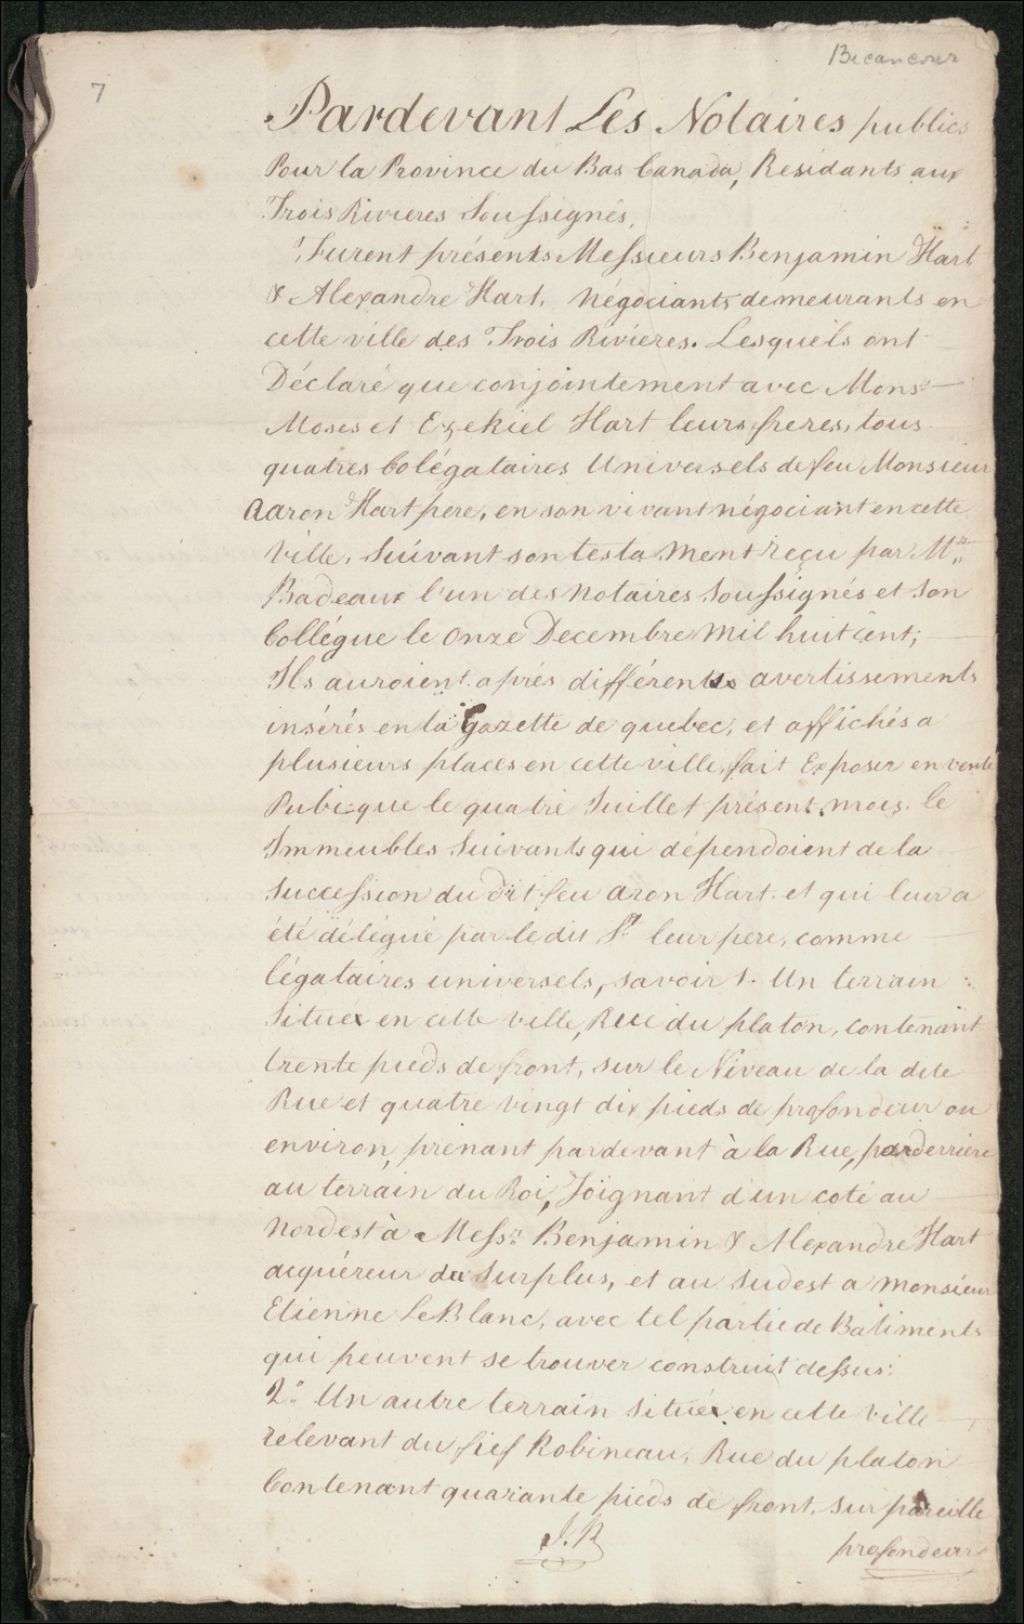 Becancour
7
Pardevant Les Notaires publics
Pour la Province du Bas Canada, Residants aux
Trois Rivieres Soussignés,
Furent présents Messieurs Benjamin Hart
& Alexandre Hart, Négociants demeurants en
cette ville des Trois Rivieres. Lesquels ont
Déclaré que conjointement avec Mons.rs
Moses et Ezekiel Hart leurs freres, tous
quatres Colégataires Universels de feu Monsieur
Aaron Hart pere, en son vivant négociant en cette
Ville, Suivant son testament reçu par M.re
Badeaux l'un des Notaires Soussignés et Son
Collégue le Onze Decembre Mil huit cent;
Ils auroient après différents avertissements
insérés en la Gazette de quebec, et affichés a
plusieurs places en cette ville, fait Exposer en vente
Publique le quatre Juillet présent mois. le
Immeubles Suivants qui dépendoient de la
Succession du dit feu Aron Hart. et qui leur a
été délégué par le dit Sr. leur pere, comme
légataires universels, savoir 1. Un terrain
Situéx en cette ville, Rue du platon, contenant
trente pieds de front, sur le Niveau de la dite
Rue et quatre vingt dix pieds de profondeur ou
environ, prenant pardevant à la Rue, parderriere
au terrain du Roi, Joignant d'un coté au
Nordest à Mess.rs Benjamin & Alexandre Hart
acquéreur du Surplus, et au Sudest a Monsieur
Etienne LeBlanc, avec tel partie de Batiments
qui peuvent se trouver construit dessus:
2.o Un autre terrain Situéx en cette Ville
relevant du fief Robineau, Rue du platon
Contenant quarante pieds de front, sur pareille
J.B
profondeur